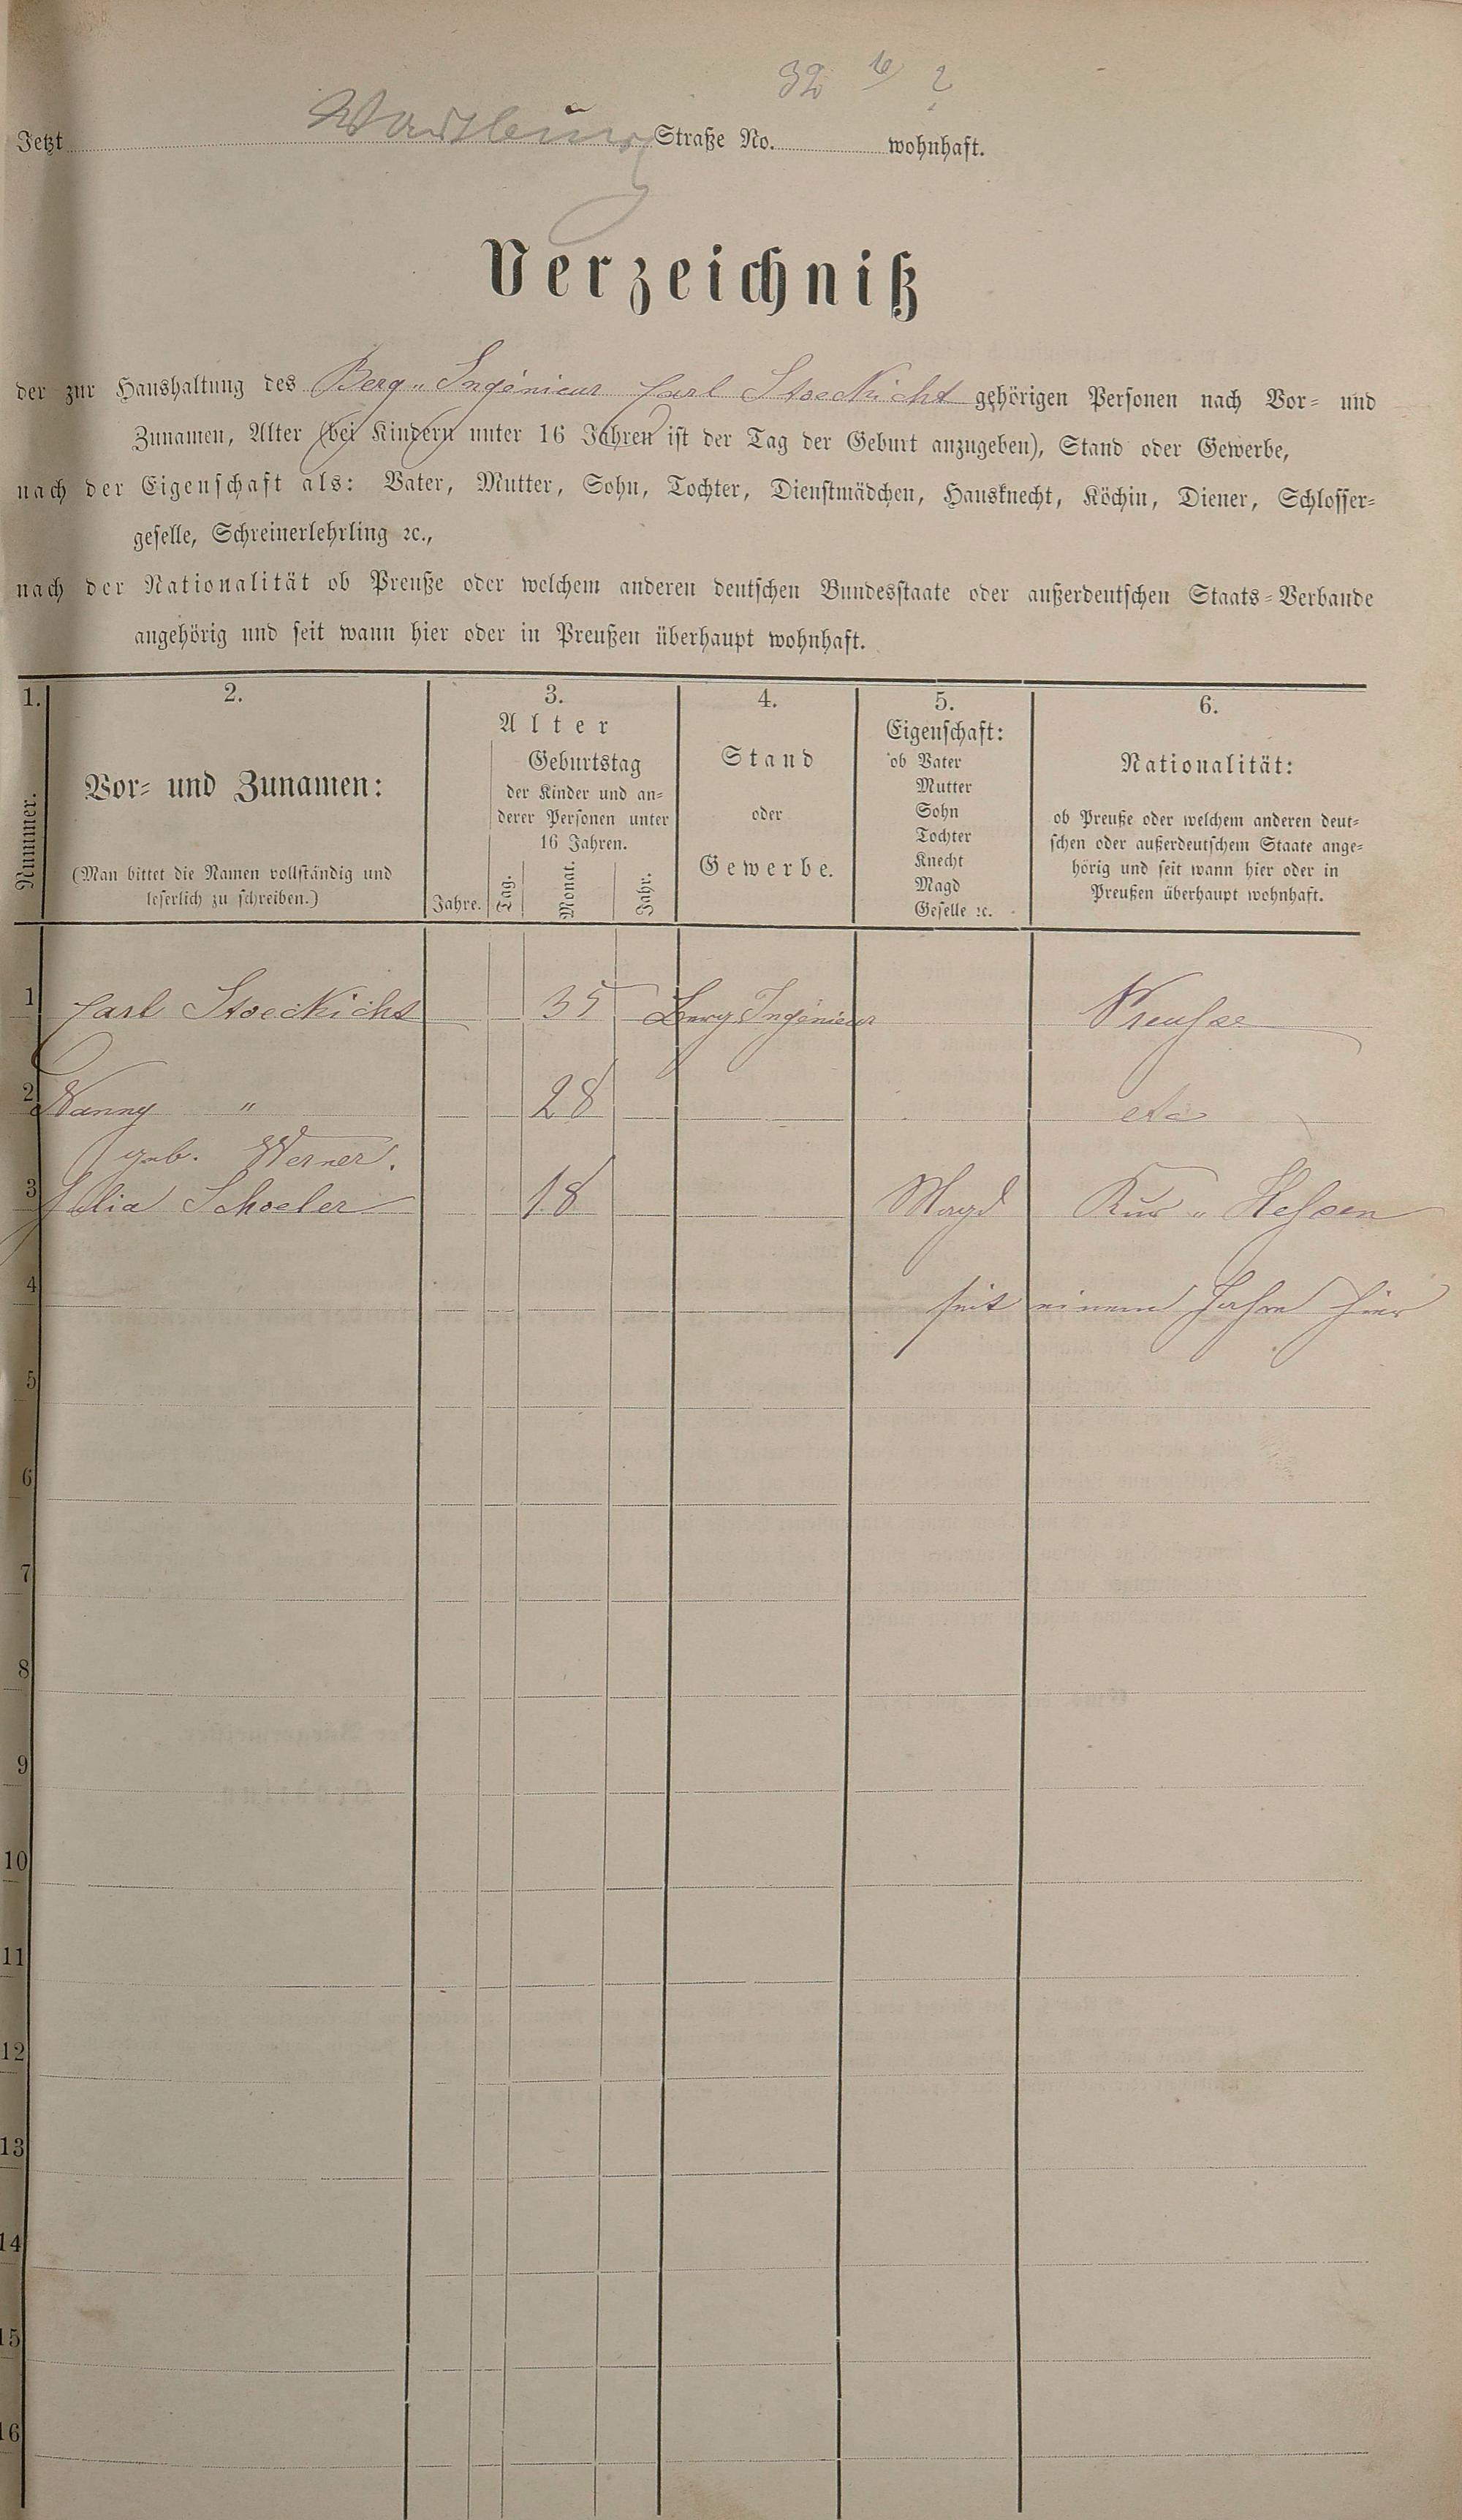 32
Jetzt Straße No. wohnhaft.
Verzeichniß
der zur Haushaltung des Berg-Ingénieur Carl Stoeckicht gehörigen Personen nach Vor- und
Zunamen, Alter (bei Kindern unter 16 Jahren ist der Tag der Geburt anzugeben), Stand oder Gewerbe,
nach der Eigenschaft als: Vater, Mutter, Sohn, Tochter, Dienstmädchen, Hausknecht, Köchin, Diener, Schlosser-
geselle, Schreinerlehrling ꝛc.,
nach der Nationalität ob Preuße oder welchem anderen deutschen Bundesstaate oder außerdeutschen Staats-Verbande
angehörig und seit wann hier oder in Preußen überhaupt wohnhaft.
1.
Nummer.
2.
Vor- und Zunamen:
(Man bittet die Namen vollständig und
leserlich zu schreiben.)
3.
Alter
Jahre.
Geburtstag
der Kinder und an-
derer Personen unter
16 Jahren.
Tag.
Monat.
Jahr.
4.
Stand
oder
Gewerbe.
5.
Eigenschaft:
ob Vater
Mutter
Sohn
Tochter
Knecht
Magd
Geselle ꝛc.
6.
Nationalität:
ob Preuße oder welchem anderen deut-
schen oder außerdeutschem Staate ange-
hörig und seit wann hier oder in
Preußen überhaupt wohnhaft.
1 Carl Stoeckicht 35 Berg-Ingénieur Preuße
2 Nanny " 28
geb. Werner.
3 Julia Schoeler 18 Magd Kur-Hessen
4 seit einem Jahre hier
5
6
7
8
9
10
11
12
13
14
15
16